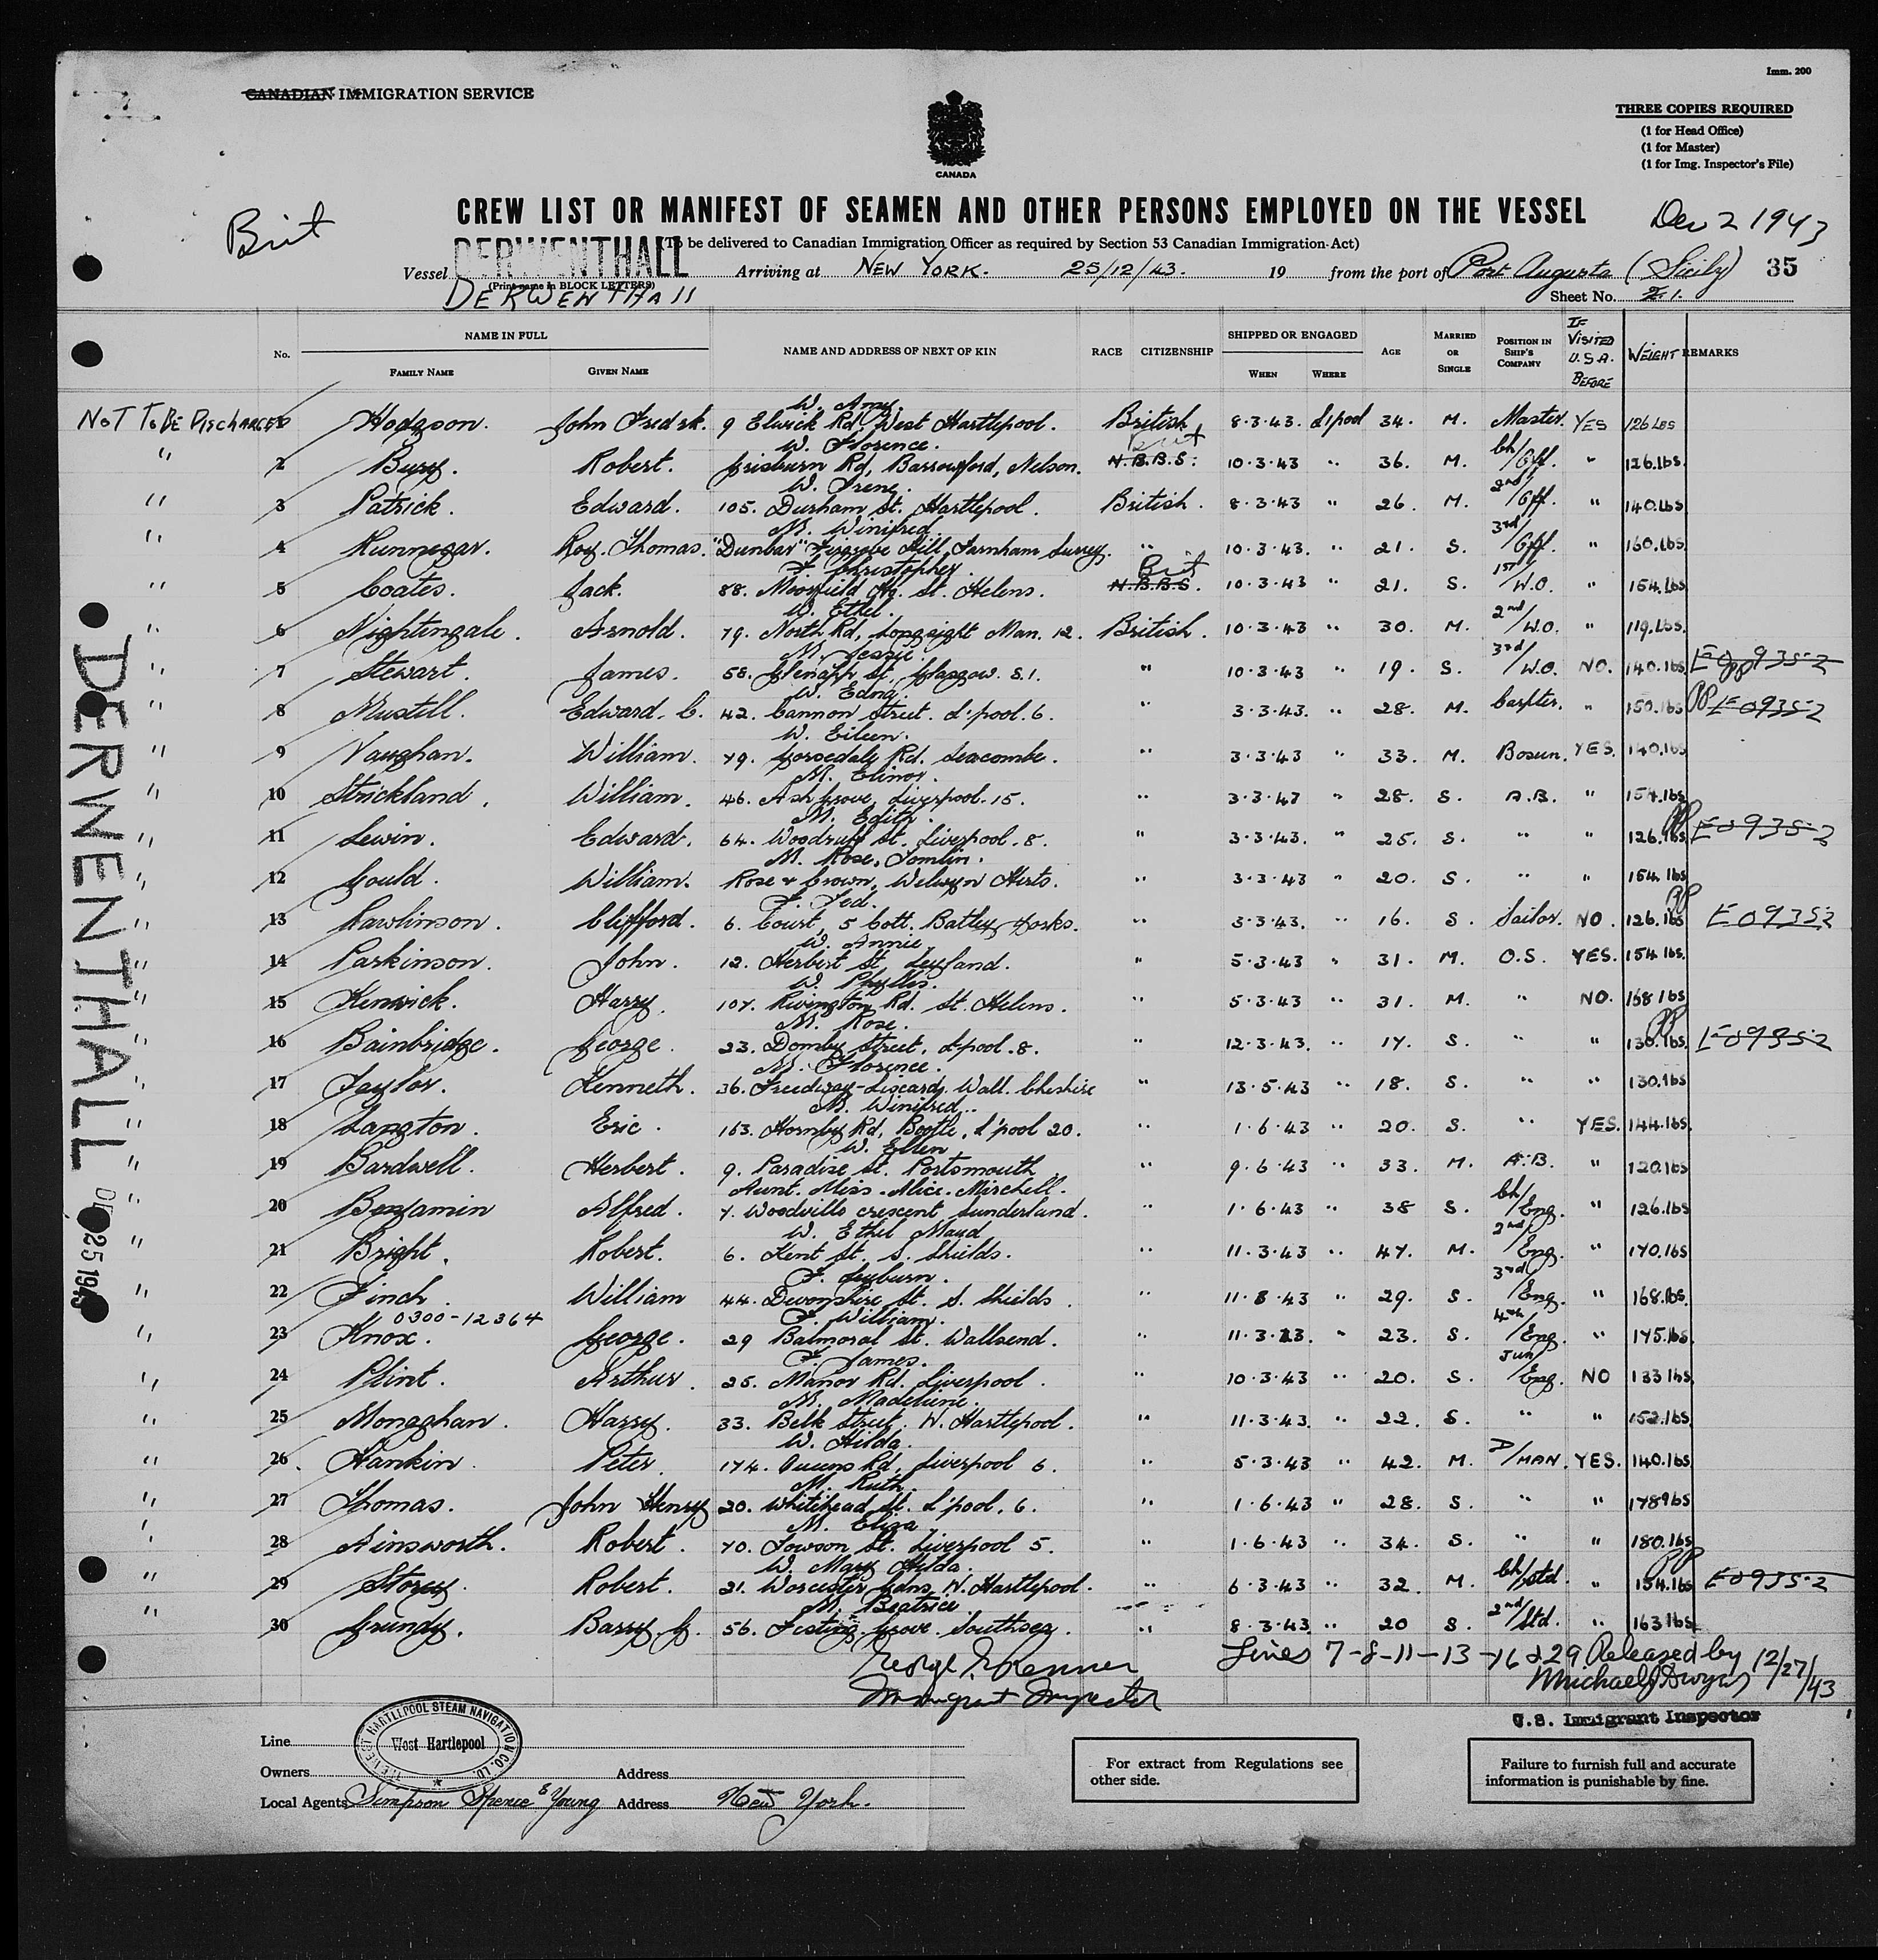 Imm. 200
CANADIAN IMMIGRATION SERVICE
THREE COPIES REQUIRED
(1 for Head Office)
(1 for Master)
(1 for Img. Inspector's File)
CANADA
Brit
CREW LIST OR MANIFEST OF SEAMEN AND OTHER PERSONS EMPLOYED ON THE VESSEL
Dec 2 1943
(To be delivered to Canadian Immigration Officer as required by Section 53 Canadian Immigration Act)
Vessel DERWENTHALL Arriving at NEW YORK. 25/12/43. 19 from the port of Port Augusta (Sicily) 35
(Print name in BLOCK LETTERS)
DERWENTHALL
Sheet No. 1.
No. NAME IN FULL NAME AND ADDRESS OF NEXT OF KIN RACE CITIZENSHIP SHIPPED OR ENGAGED AGE MARRIED OR SINGLE POSITION IN SHIP'S COMPANY IF VISITED U.S.A. BEFORE WEIGHT REMARKS
FAMILY NAME GIVEN NAME WHEN WHERE
W. Amy.
NOT TO BE DISCHARGED 1 Hodgson. John Fredrk. 9 Elwick Rd, West Hartlepool. British 8.3.43. L'pool 34. M. Master. YES 126 LBS
W. Florence. Brit
" 2 Bury. Robert. Gisburn Rd, Barrowford, Nelson. N.B.B.S. 10.3.43 " 36. M. Ch/Off. " 126.lbs.
W. Irene.
" 3 Patrick. Edward. 105. Durham St. Hartlepool. British. 8.3.43 " 26. M. 2nd/Off. " 140.lbs
M. Winifred
" 4 Runnegar. Roy. Thomas. "Dunbar" Firgrove Hill, Farnham Surrey. " 10.3.43. " 21. S. 3rd/Off. " 160.lbs
F. Christopher. Brit
" 5 Coates. Jack. 88. Moorfield St. Helens. N.B.B.S. 10.3.43 " 21. S. 1st/W.O. " 154.lbs
W. Ethel.
" 6 Nightingale. Arnold. 79. North Rd, Longsight Man. 12. British. 10.3.43 " 30. M. 2nd/W.O. " 119.lbs.
M. Jessie.
" 7 Stewart. James. 58. St, Glasgow. S.1. " 10.3.43 " 19. S. 3rd/W.O. NO. 140.lbs E09352
W. Edna.
" 8 Mustill. Edward. C. 42. Cannon Street. L'pool. 6. " 3.3.43. " 28. M. Carpter. " 150.lbs PP E09352
W. Eileen.
" 9 Vaughan. William. 79. Gorsedale Rd. Seacombe. " 3.3.43 " 33. M. Bosun. YES. 140.lbs
M. Elinor.
" 10 Strickland. William. 46. Ash Grove, Liverpool. 15. " 3.3.47 " 28. S. A.B. " 154.lbs
M. Edith.
" 11 Lewin. Edward. 64. Woodruff St. Liverpool. 8. " 3.3.43. " 25. S. " " 126.lbs PP E09352
M. Rose, Tomlin.
" 12 Gould. William. Rose & Crown, Welwyn Herts. " 3.3.43 " 20. S. " " 154 lbs
F. Ted.
" 13 Rawlinson. Clifford. 6. Court, 5 Cott. Batley Yorks. " 3.3.43. " 16. S. Sailor. NO. 126.lbs PP E09352
W. Annie
" 14 Parkinson. John. 12. Herbert St, Leyland. " 5.3.43 " 31. M. O.S. YES. 154 lbs.
W. Phyllis.
" 15 Kenwick. Harry. 107. Rivington Rd. St. Helens. " 5.3.43 " 31. M. " NO. 168 lbs
M. Rose.
" 16 Bainbridge. George. 23. Domby Street, L'pool. 8. " 12.3.43. " 17. S. " " 130.lbs. PP E09352
M. Florence.
" 17 Taylor. Kenneth. 36. Treedway-Liscard, Wall. Cheshire " 13.5.43 " 18. S. " " 130.lbs
M. Winifred.
" 18 Langton. Eric. 163. Hornby Rd, Bootle, L'pool 20. " 1.6.43 " 20. S. " YES. 144.lbs.
W. Ellen
" 19 Bardwell. Herbert. 9. Paradise St. Portsmouth " 9.6.43 " 33. M. A.B. " 120.lbs
Aunt. Miss. Alice. Mirchell.
" 20 Benjamin Alfred. 7. Woodville crescent Sunderland. " 1.6.43 " 38 S. Ch/Eng. " 126.lbs
W. Ethel Maud
" 21 Bright. Robert. 6. Kent St. S. Shields. " 11.3.43 " 47. M. 2nd/Eng. " 170.lbs
F. Leyburn.
" 22 Finch William 44. Devonshire St. S. Shields. " 11.8.43 " 29. S. 3rd/Eng. " 168.lbs.
0300-12364 F. William.
" 23 Knox. George. 29 Balmoral St. Wallsend. " 11.3.23. " 23. S. 4th/Eng. " 175.lbs.
F. James.
" 24 Plint. Arthur. 25. Manor Rd. Liverpool. " 10.3.43 " 20. S. Jun/Eng. NO 133 lbs.
M. Madeline.
" 25 Monaghan. Harry. 33. Belk Street, W. Hartlepool. " 11.3.43. " 22. S. " " 152.lbs
W. Hilda.
" 26. Hankin. Peter. 174. Queens Rd, Liverpool 6. " 5.3.43 " 42. M. D/MAN. YES. 140.lbs
M. Ruth.
" 27 Thomas. John Henry 20. Whitehead St. L'pool. 6. " 1.6.43 " 28. S. " " 178 lbs
M. Eliza
" 28 Ainsworth. Robert. 70. Towson St. Liverpool 5. " 1.6.43 " 34. S. " " 180.lbs
W. Mary Hilda.
" 29 Storey. Robert. 21. Worcester Gdns, W. Hartlepool. " 6.3.43 " 32 M. Ch/Std. " 154.lbs PP E09352
M. Beatrice.
" 30 Grundy. Barry. G. 56. Festing Grove. Southsea. " 8.3.43 " 20 S. 2nd/Std. " 163 lbs
Lines 7-8-11-13-16 & 29 Released by
Michael J Dwyer 12/27/43
George
Immigrant Inspector
U.S. Immigrant Inspector
DERWENTHALL
DEC 25 1943
THE WEST HARTLEPOOL STEAM NAVIGATION CO. LD.
West Hartlepool
Line
Owners Address
Local Agents Simpson Spence & Young Address New York.
For extract from Regulations see
other side.
Failure to furnish full and accurate
information is punishable by fine.